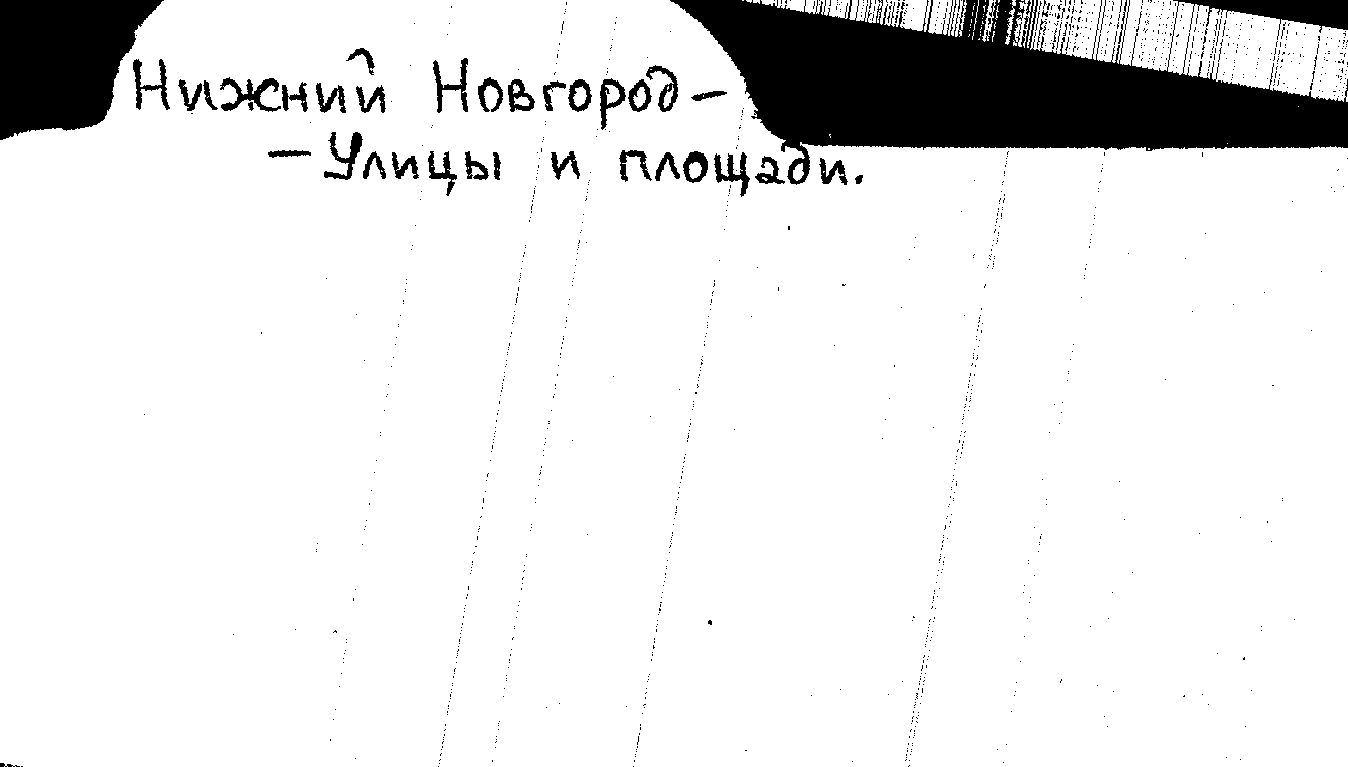 Нижний Новгород –
– Улицы и площади.